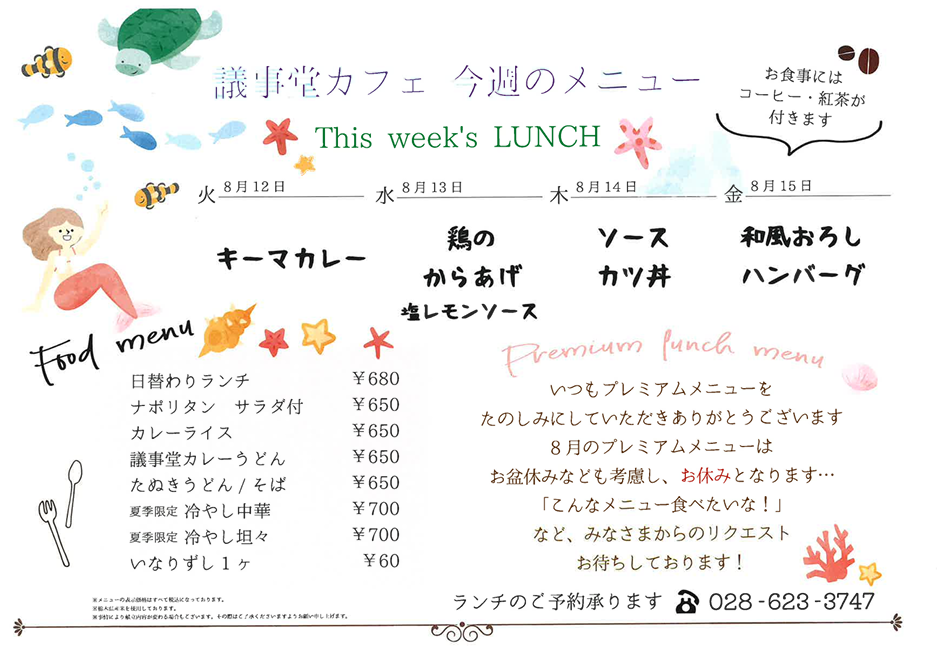 議事堂カフェ 今週のメニュー
This week's LUNCH
お食事には
コーヒー・紅茶が
付きます
火 8月12日
水 8月13日
木 8月14日
金 8月15日
キーマカレー
鶏の
からあげ
塩レモンソース
ソース
カツ丼
和風おろし
ハンバーグ
Food menu
日替わりランチ ￥680
ナポリタン サラダ付 ￥650
カレーライス ￥650
議事堂カレーうどん ￥650
たぬきうどん / そば ￥650
夏季限定 冷やし中華 ￥700
夏季限定 冷やし坦々 ￥700
いなりずし１ヶ ￥60
Premium lunch menu
いつもプレミアムメニューを
たのしみにしていただきありがとうございます
８月のプレミアムメニューは
お盆休みなども考慮し、お休みとなります…
「こんなメニュー食べたいな！」
など、みなさまからのリクエスト
お待ちしております！
※メニューの表示価格はすべて税込になっております。
※栃木県産米を使用しております。
※事情により献立内容が変わる場合もございます。その際はご了承くださいますようお願い申し上げます。
ランチのご予約承ります ☎ 028-623-3747